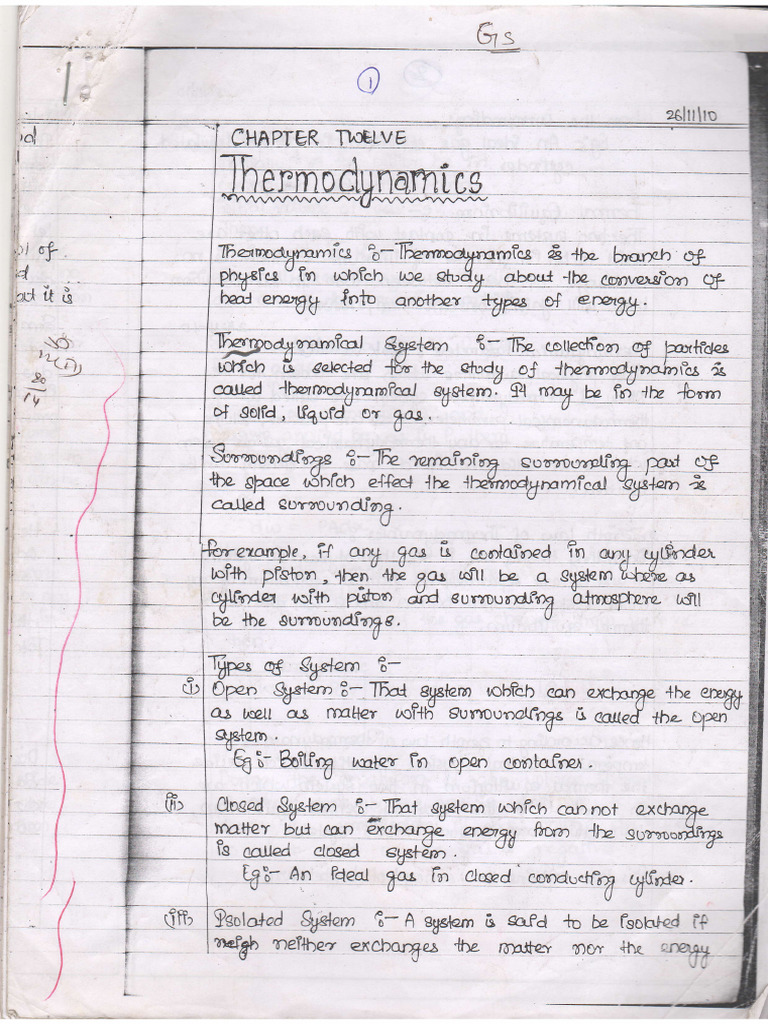 Gs
1
26/11/10
CHAPTER TWELVE
Thermodynamics
Thermodynamics :- Thermodynamics is the branch of
physics in which we study about the conversion of
heat energy into another types of energy.
Thermodynamical System :- The collection of particles
which is selected for the study of thermodynamics is
called thermodynamical system. It may be in the form
of solid, liquid or gas.
Surroundings :- The remaining surrounding part of
the space which effect the thermodynamical system is
called surrounding.
For example, if any gas is contained in any cylinder
with piston, then the gas will be a system where as
cylinder with piston and surrounding atmosphere will
be the surroundings.
Types of System :-
(i) Open System :- That system which can exchange the energy
as well as matter with surroundings is called the open
system.
Eg :- Boiling water in open container.
(ii) Closed System :- That system which can not exchange
matter but can exchange energy from the surroundings
is called closed system.
Eg :- An ideal gas in closed conducting cylinder.
(iii) Isolated System :- A system is said to be isolated if
neither exchanges the matter nor the energy
of
act it is